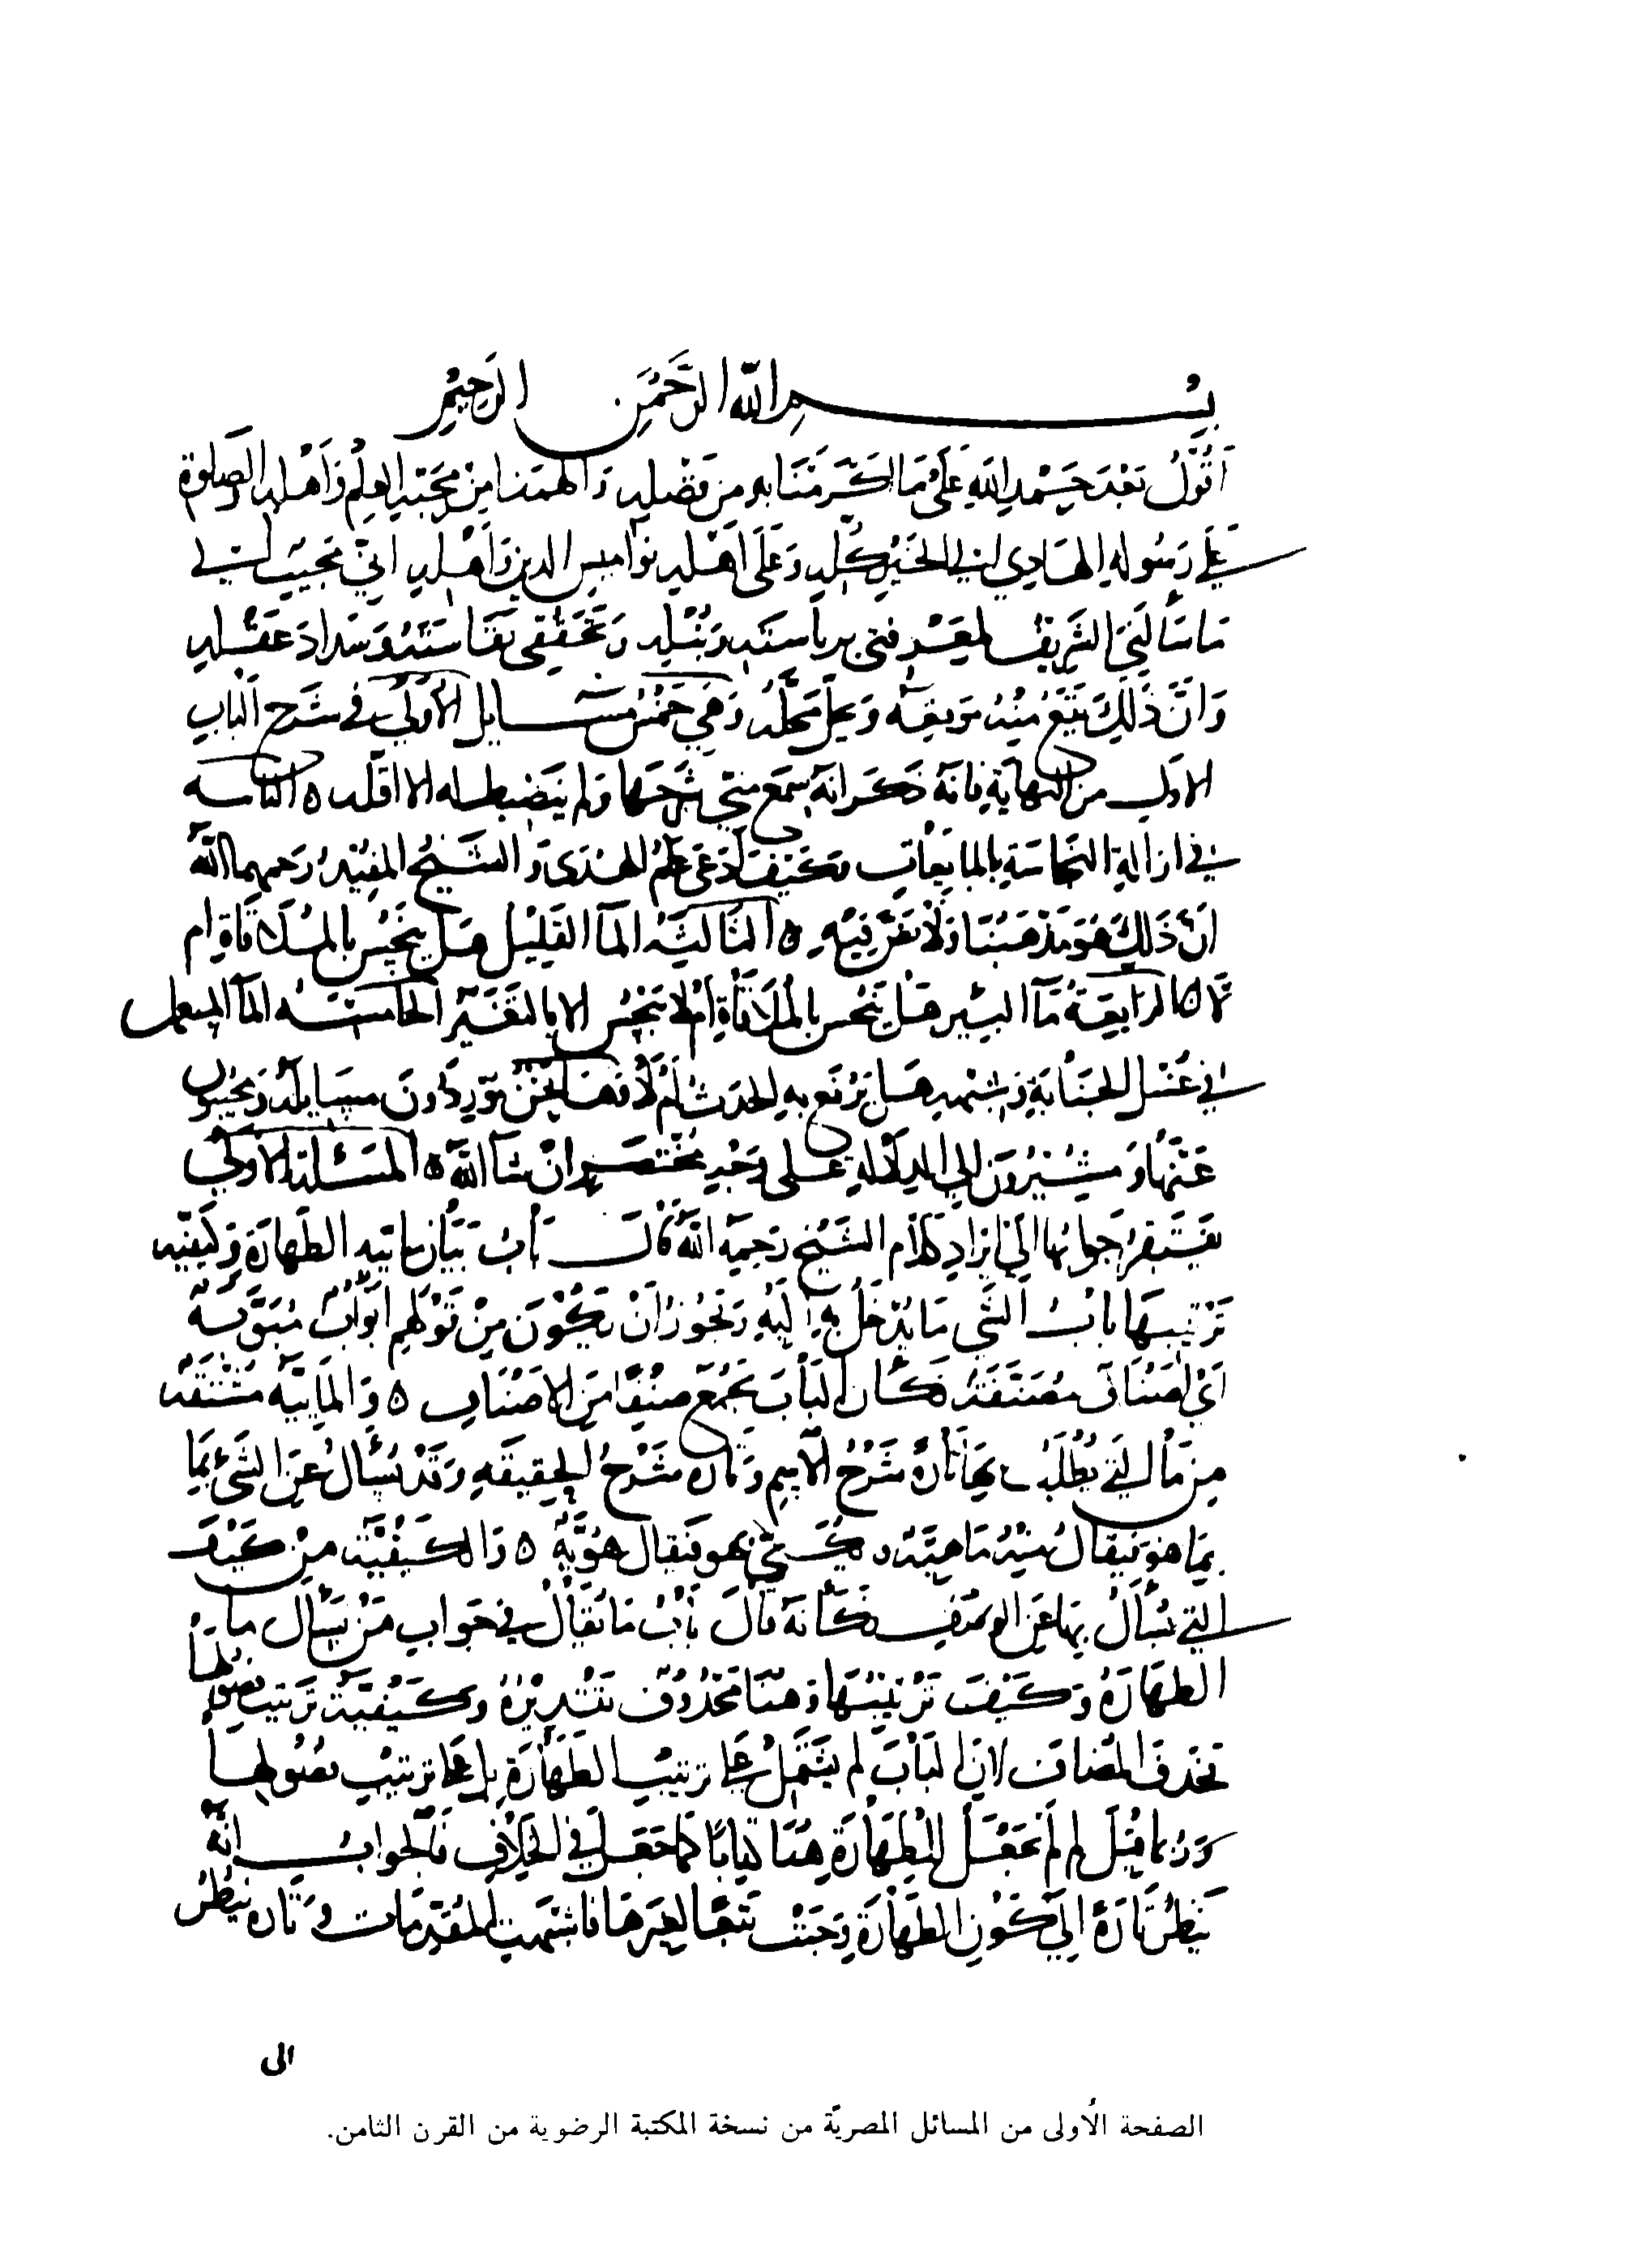 بسم الله الرحمن الرحيم
اقول بعد حمد الله على ما اكرمنا به من فضله والهمنا من محبة العلم واهله والصلوة
على رسوله الهادي الى الخير كله وعلى اهله نواميس الدين واهله اني مجيب الى
ما سألني الشريف لمعرفتي برياسته ونبله وتحققي نفاسته وسداد عقله
وان ذلك يقع منه موقعه ويحل محله وهي خمس مسايل الاولى في شرح الباب
الاول من النهاية فانه ذكر انه سمع مني شرحها ولم ينضبط له الا اقله ه الثانيه
في ازالة النجاسة بالمايعات وكيف ادعى علم الهدى والشيخ المفيد رحمهما الله
ان ذلك هو مذهبنا ولا نص فيه ه الثالثه المآ القليل هل ينجس بالملاقاة ام
لا ه الرابعة مآ البير هل ينجس بالملاقاة ام لا ينجس الا بالتغير الخامسه المآ المستعمل
في غسل الجنابة وشبهه هل يرفع به الحدث ام لا وها نحن نورد مسايله ونجيب
عنها ومشيرون الى الدلالة على وجه مختصر ان شآ الله ه المسئلة الاولى
يفتقر جوابها الى ايراد كلام الشيخ رحمه الله قال باب بيان ماهيه الطهارة وكيفيه
ترتيبها باب الشي ما يدخل به اليه ويجوز ان يكون من قولهم ابواب مبوبه
اي اصناف مصنفة فكان الباب يجمع صنفا من الاصناف ه والماهيه مشتقة
من ما التي يطلب بها تارة شرح الاسم وتاره شرح الحقيقه وقد يسأل عن الشئ بما
بما هو فيقال منه ماهية وبهو فيقال هوية ه والكيفية من كيف
التي يسأل بها عن الوصف فكأنه قال باب ما يقال في جواب من يسأل ما
الطهارة وكيف ترتيبها وهنا محذوف تقديره وكيفية ترتيب فصولها
فحذف المضاف لان الباب لم يشتمل على ترتيب الطهارة بل على ترتيب فصولها
وربما قيل لم لم نجعل للطهارة هنا كتابا كما جعل في الخلاف فالجواب انه
ينظر تارة الى كون الطهارة وجبت تبعا لغيرها فاشبهت المقدمات وتاره ينظر
الى
الصفحة الأولى من المسائل المصريّة من نسخة المكتبة الرضوية من القرن الثامن.